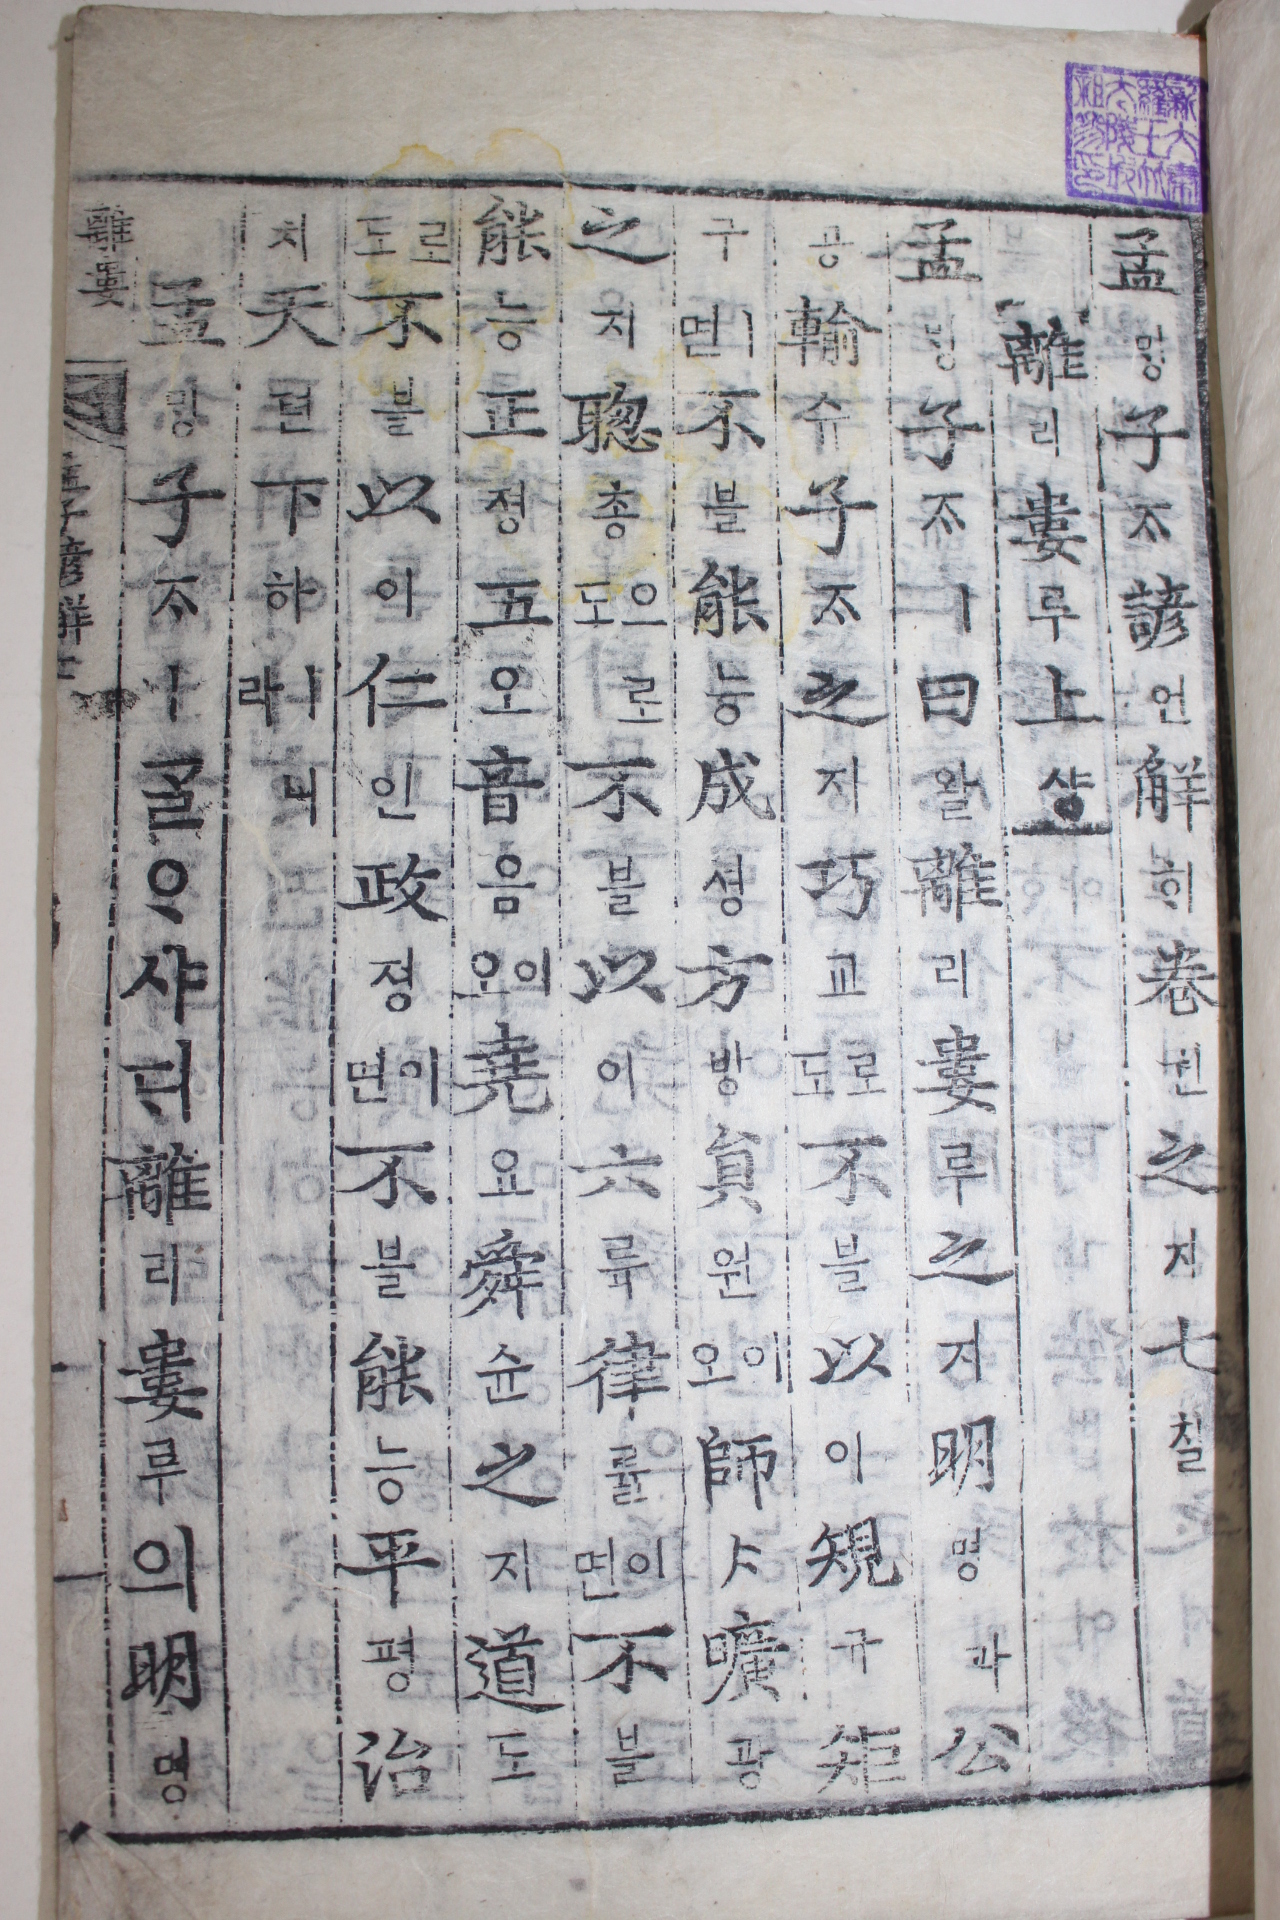 孟ᄆᆡᆼ子ᄌᆞ諺언觧ᄒᆡ卷권之지七칠
離리婁루上샹
孟ᄆᆡᆼ子ᄌᆞㅣ曰왈離리婁루之지明명과公
공輸슈子ᄌᆞ之지巧교로도不블以이規규矩
구ㅣ면不블能능成셩方방貟원이오師ᄉᆞ曠광
之지聦총으로도不블以이六륙律률이면不블
能능正졍五오音음이오堯요舜슌之지道도
로도不블以이仁인政졍이면不블能능平평治
치天텬下하ㅣ니라
孟ᄆᆡᆼ子ᄌᆞㅣᄀᆞᆯᄋᆞ샤ᄃᆡ離리婁루의明명
離婁
孟子諺解七